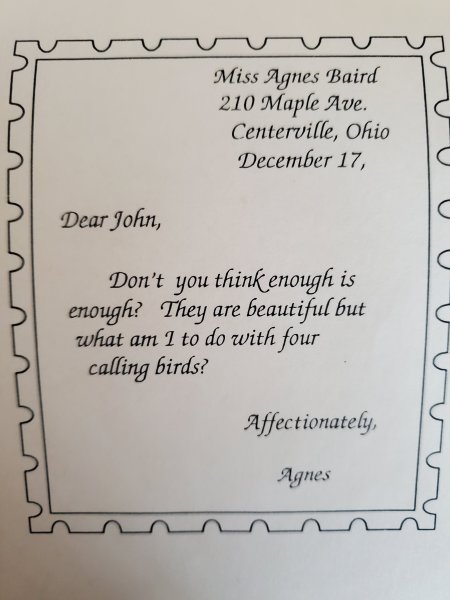 Miss Agnes Baird
210 Maple Ave.
Centerville, Ohio
December 17,
Dear John,
Don't you think enough is
enough? They are beautiful but
what am I to do with four
calling birds?
Affectionately,
Agnes